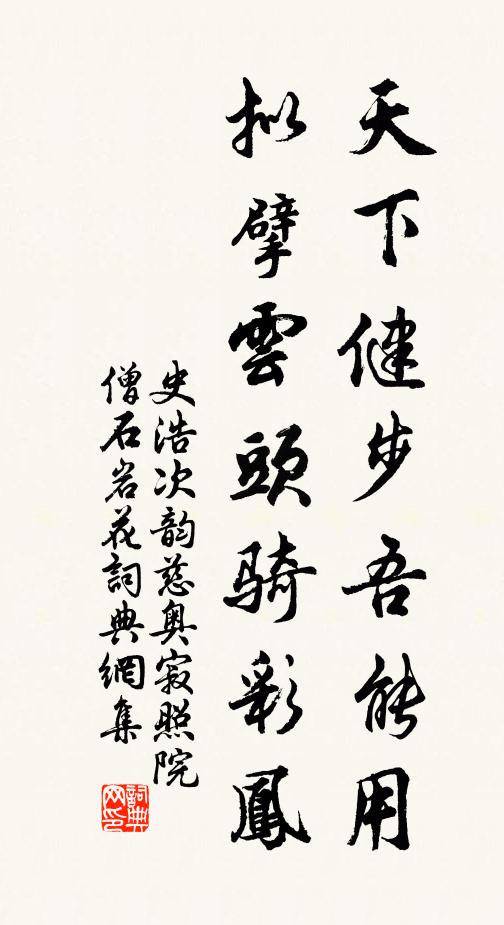 天下健步吾能用
拟擘雲頭騎彩鳳
史浩次韵慈奥寂照院
僧石岩花詞典網集
詞典
网印